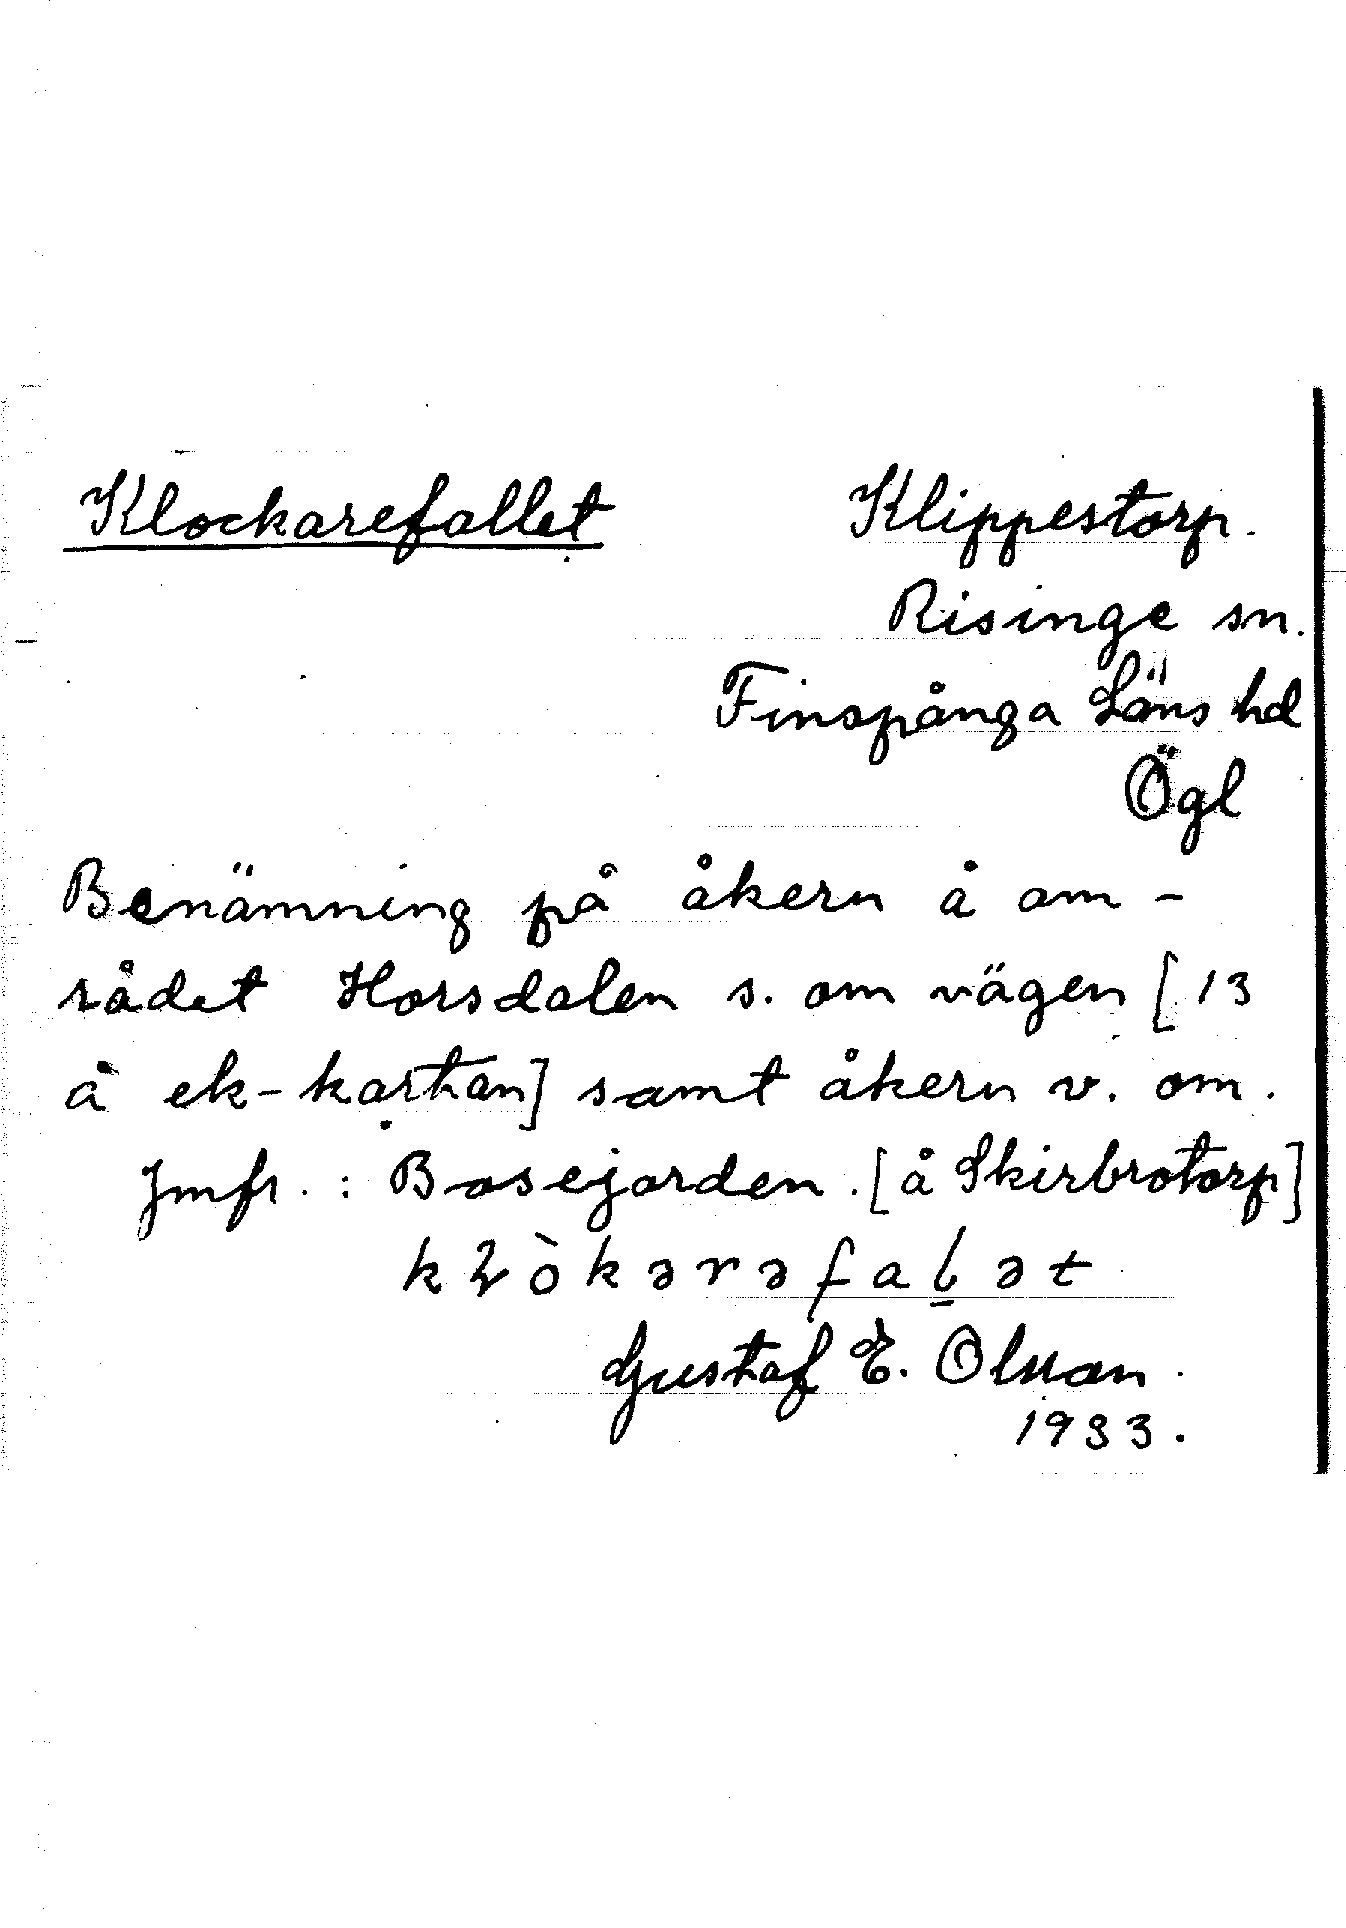 Klockarefallet Klippestorp.
Risinge sn.
Finspånga Läns hd
Ögl
Benämning på åkern å om-
rådet Horsdalen s. om vägen [13
å ek-kartan] samt åkern v. om.
Jmfr.: Basejorden. [å Skirbrotorp]
Gustaf E. Olsson.
1933.